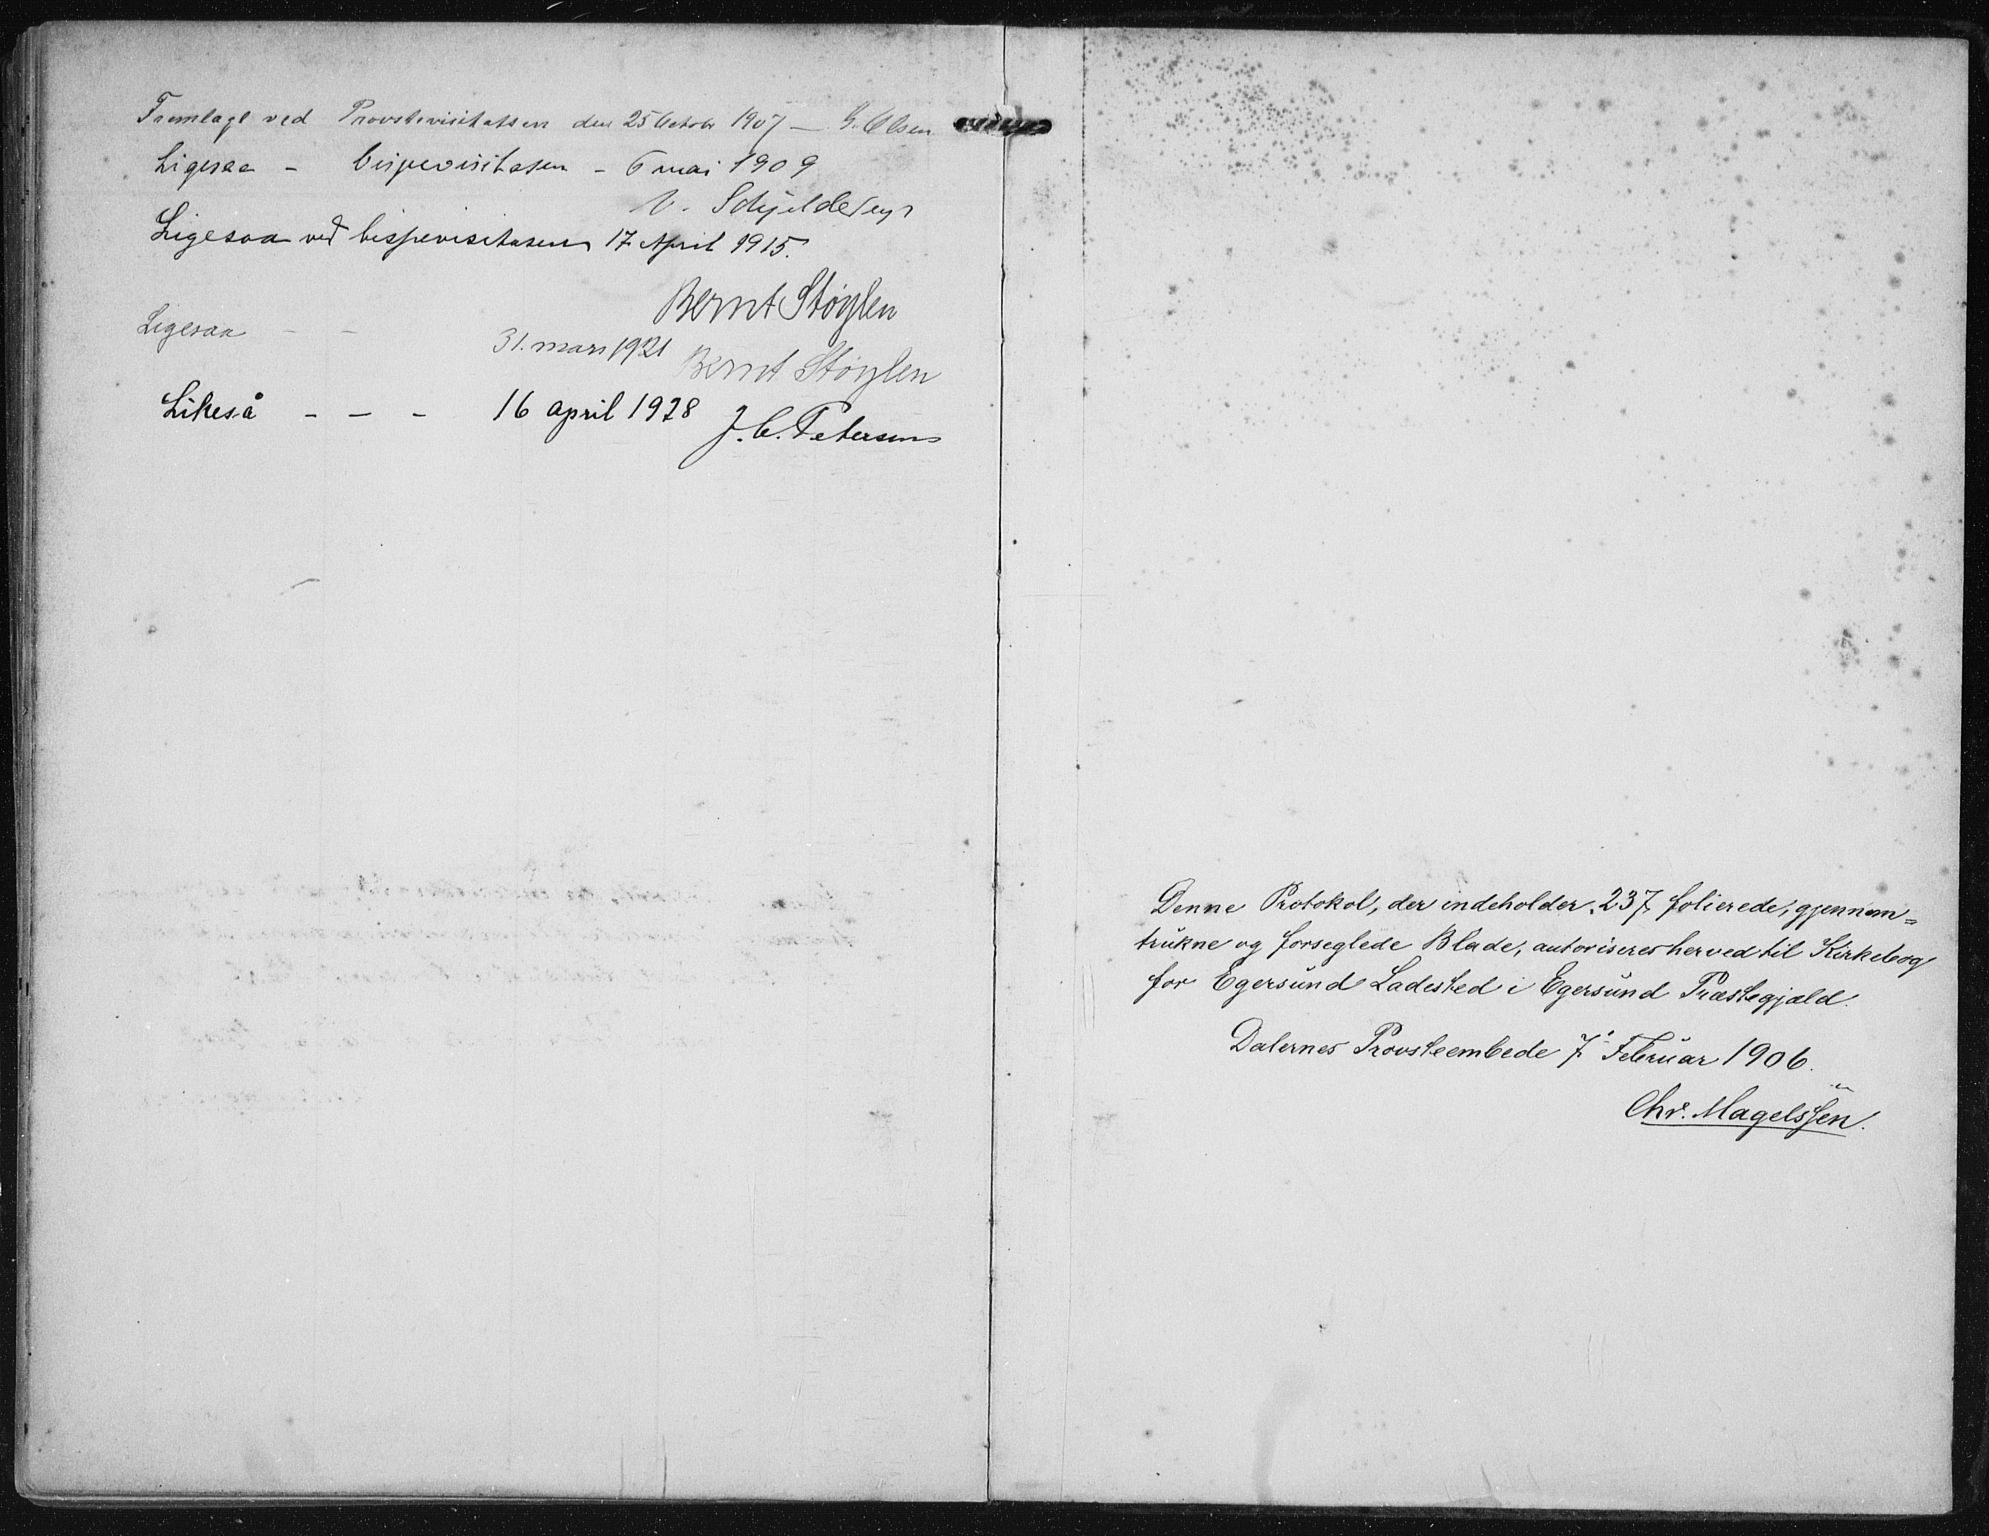 Fremlagt ved Provstevisitatsen den 25 Octobr 1907 — G. Olsen
Ligesaa – bispevisitasen – 6 mai 1909
V. Schjelderup
Ligesaa ved bispevisitasen 17 April 1915.
Bernt Støylen
Ligesaa – –
31. mars 1921
Bernt Støylen
Likeså – – – 16 april 1928
J. C. Petersen
Denne Protokol, der indeholder 237 folierede, gjennem=
trukne og forseglede Blade, autoriseres herved til Kirkebog
for Egersund Ladested i Egersund Præstegjæld.
Dalernes Provsteembede 7 Februar 1906.
Chr. Magelssen.